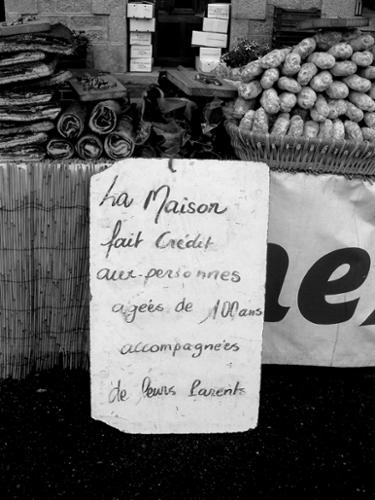 La Maison
fait Crédit
aux personnes
agées de 100 ans
accompagnées
de leurs Parents
ne